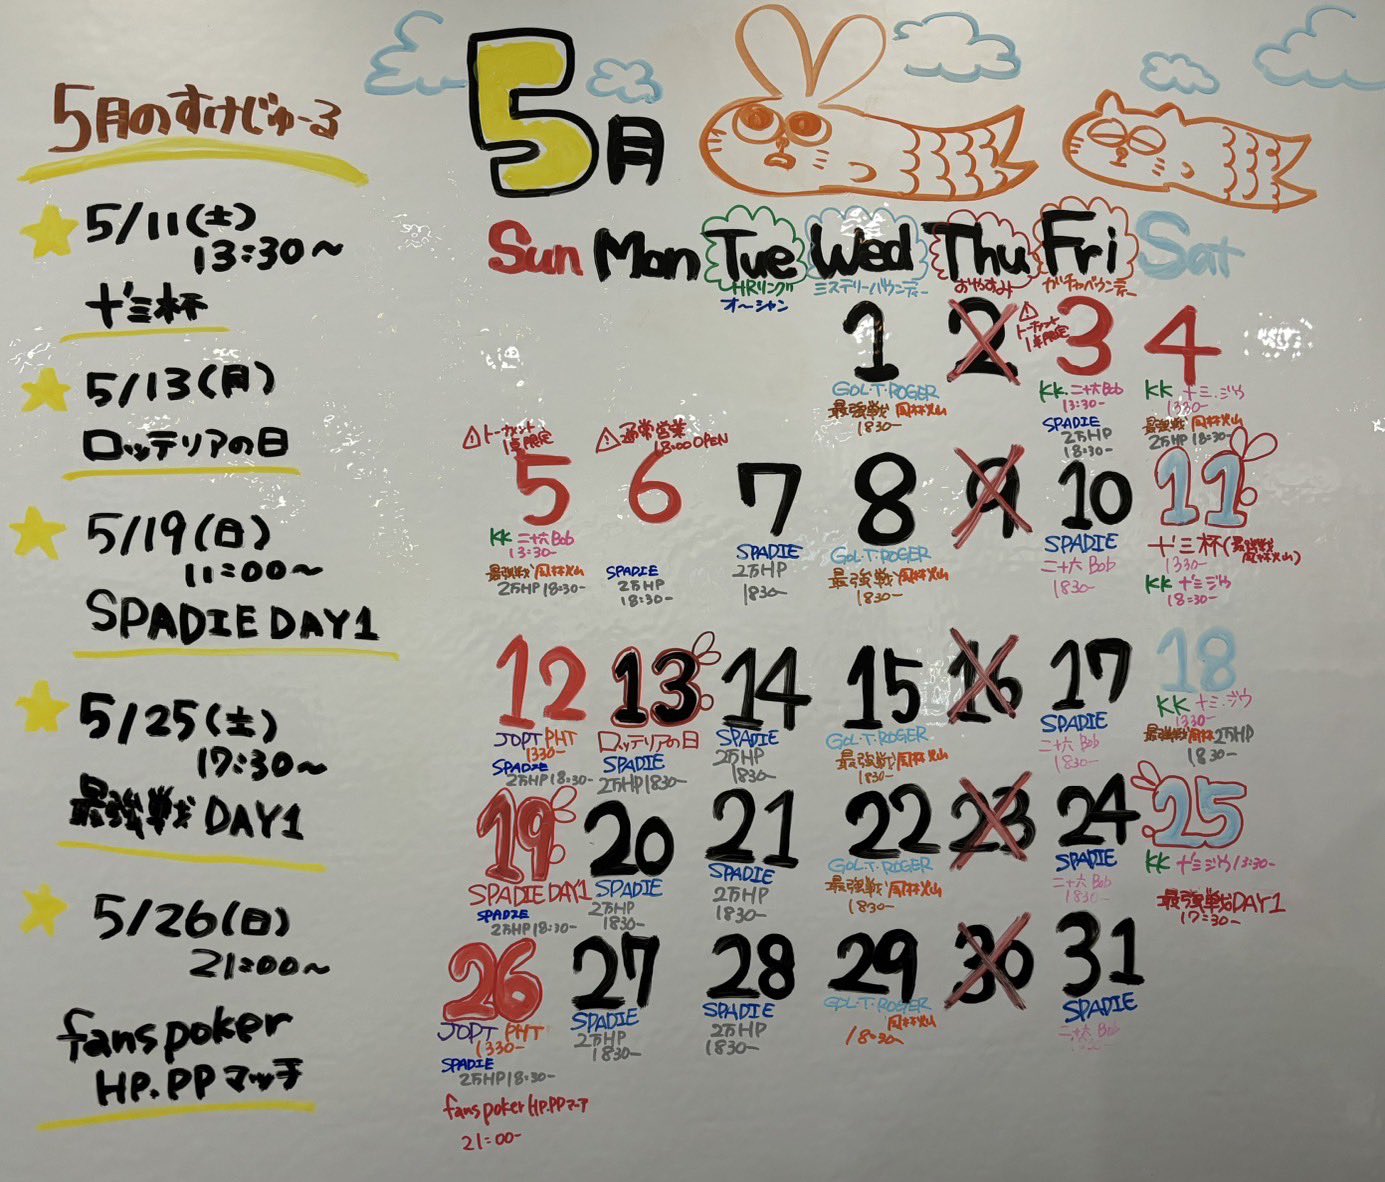 5月のすけじゅーる
5/11(土)
13:30~
十三杯
5/13(月)
ロッテリアの日
5/19(日)
11:00~
SPADIE DAY1
5/25(土)
17:30~
最強戦 DAY1
5/26(日)
21:00~
fans poker
HP.PPマッチ
5月
Sun Mon Tue Wed Thu Fri Sat
HRリング ミステリーバウンティー おやすみ ガチャバウンティー
オーシャン
1 2 3 4
トーナメント
1卓限定
GOL.T.ROGER
最強戦 風林火山
1830-
KK 二十六 Bob
13:30-
SPADIE
2万HP
18:30-
KK 十三.ジウ
1330-
最強戦 風林火山
2万HP 18:30-
トーナメント
1卓限定
通常営業
18:00 OPEN
5 6 7 8 9 10 11
KK 二十六 Bob
13:30-
最強戦 風林火山
2万HP 18:30-
SPADIE
2万HP
18:30-
SPADIE
2万HP
1830-
GOL.T.ROGER
最強戦 風林火山
1830-
SPADIE
二十六 Bob
1830-
十三杯(最強戦
風林火山)
1330-
KK 十三ジウ
18:30-
12 13 14 15 16 17 18
JOPT PHT
1330-
SPADIE
2万HP 18:30-
ロッテリアの日
SPADIE
2万HP 1830-
SPADIE
2万HP
1830-
GOL.T.ROGER
最強戦 風林火山
1830-
SPADIE
二十六 Bob
1830-
KK 十三.ジウ
1330-
最強戦 風林 2万HP
1830-
19 20 21 22 23 24 25
SPADIE DAY1
SPADIE
2万HP 18:30-
SPADIE
2万HP
1830-
SPADIE
2万HP
1830-
GOL.T.ROGER
最強戦 風林火山
1830-
SPADIE
二十六 Bob
1830-
KK 十三ジウ 13:30-
最強戦 DAY1
17:30-
26 27 28 29 30 31
JOPT PHT
1330-
SPADIE
2万HP 18:30-
fans poker HP.PP
21:00-
SPADIE
2万HP
1830-
SPADIE
2万HP
1830-
GOL.T.ROGER
風林火山
18:30-
SPADIE
二十六 Bob